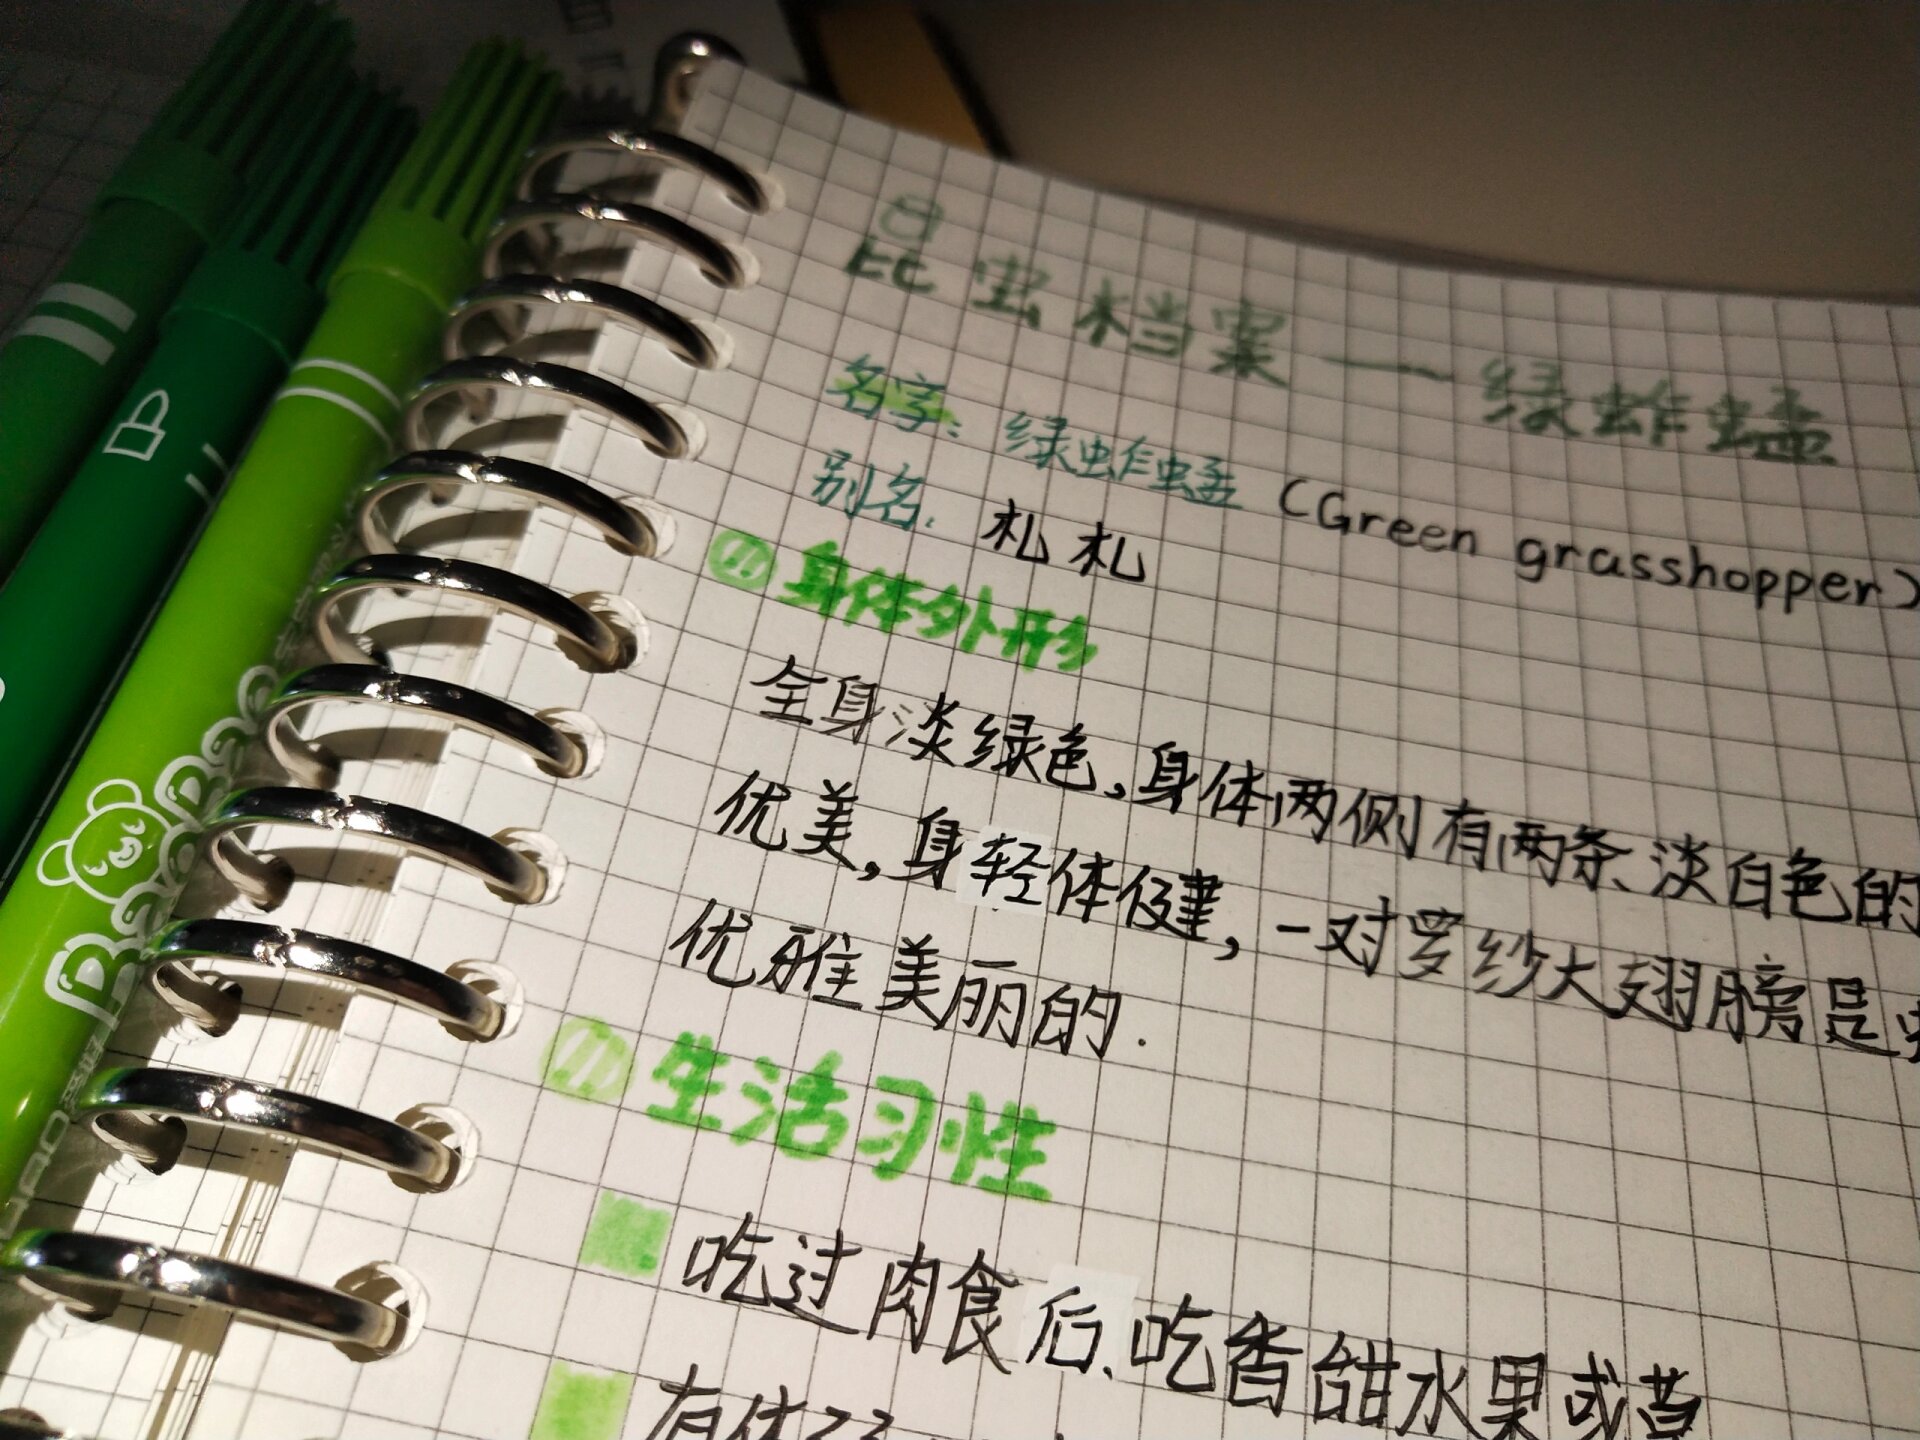 昆虫档案一绿蚱蜢
名字：绿蚱蜢（Green grasshopper）
别名：札札
身体外形
全身淡绿色，身体两侧有两条淡白色的
优美，身轻体健，一对罗纱大翅膀是
优雅美丽的.
生活习性
吃过肉食后、吃香甜水果或草